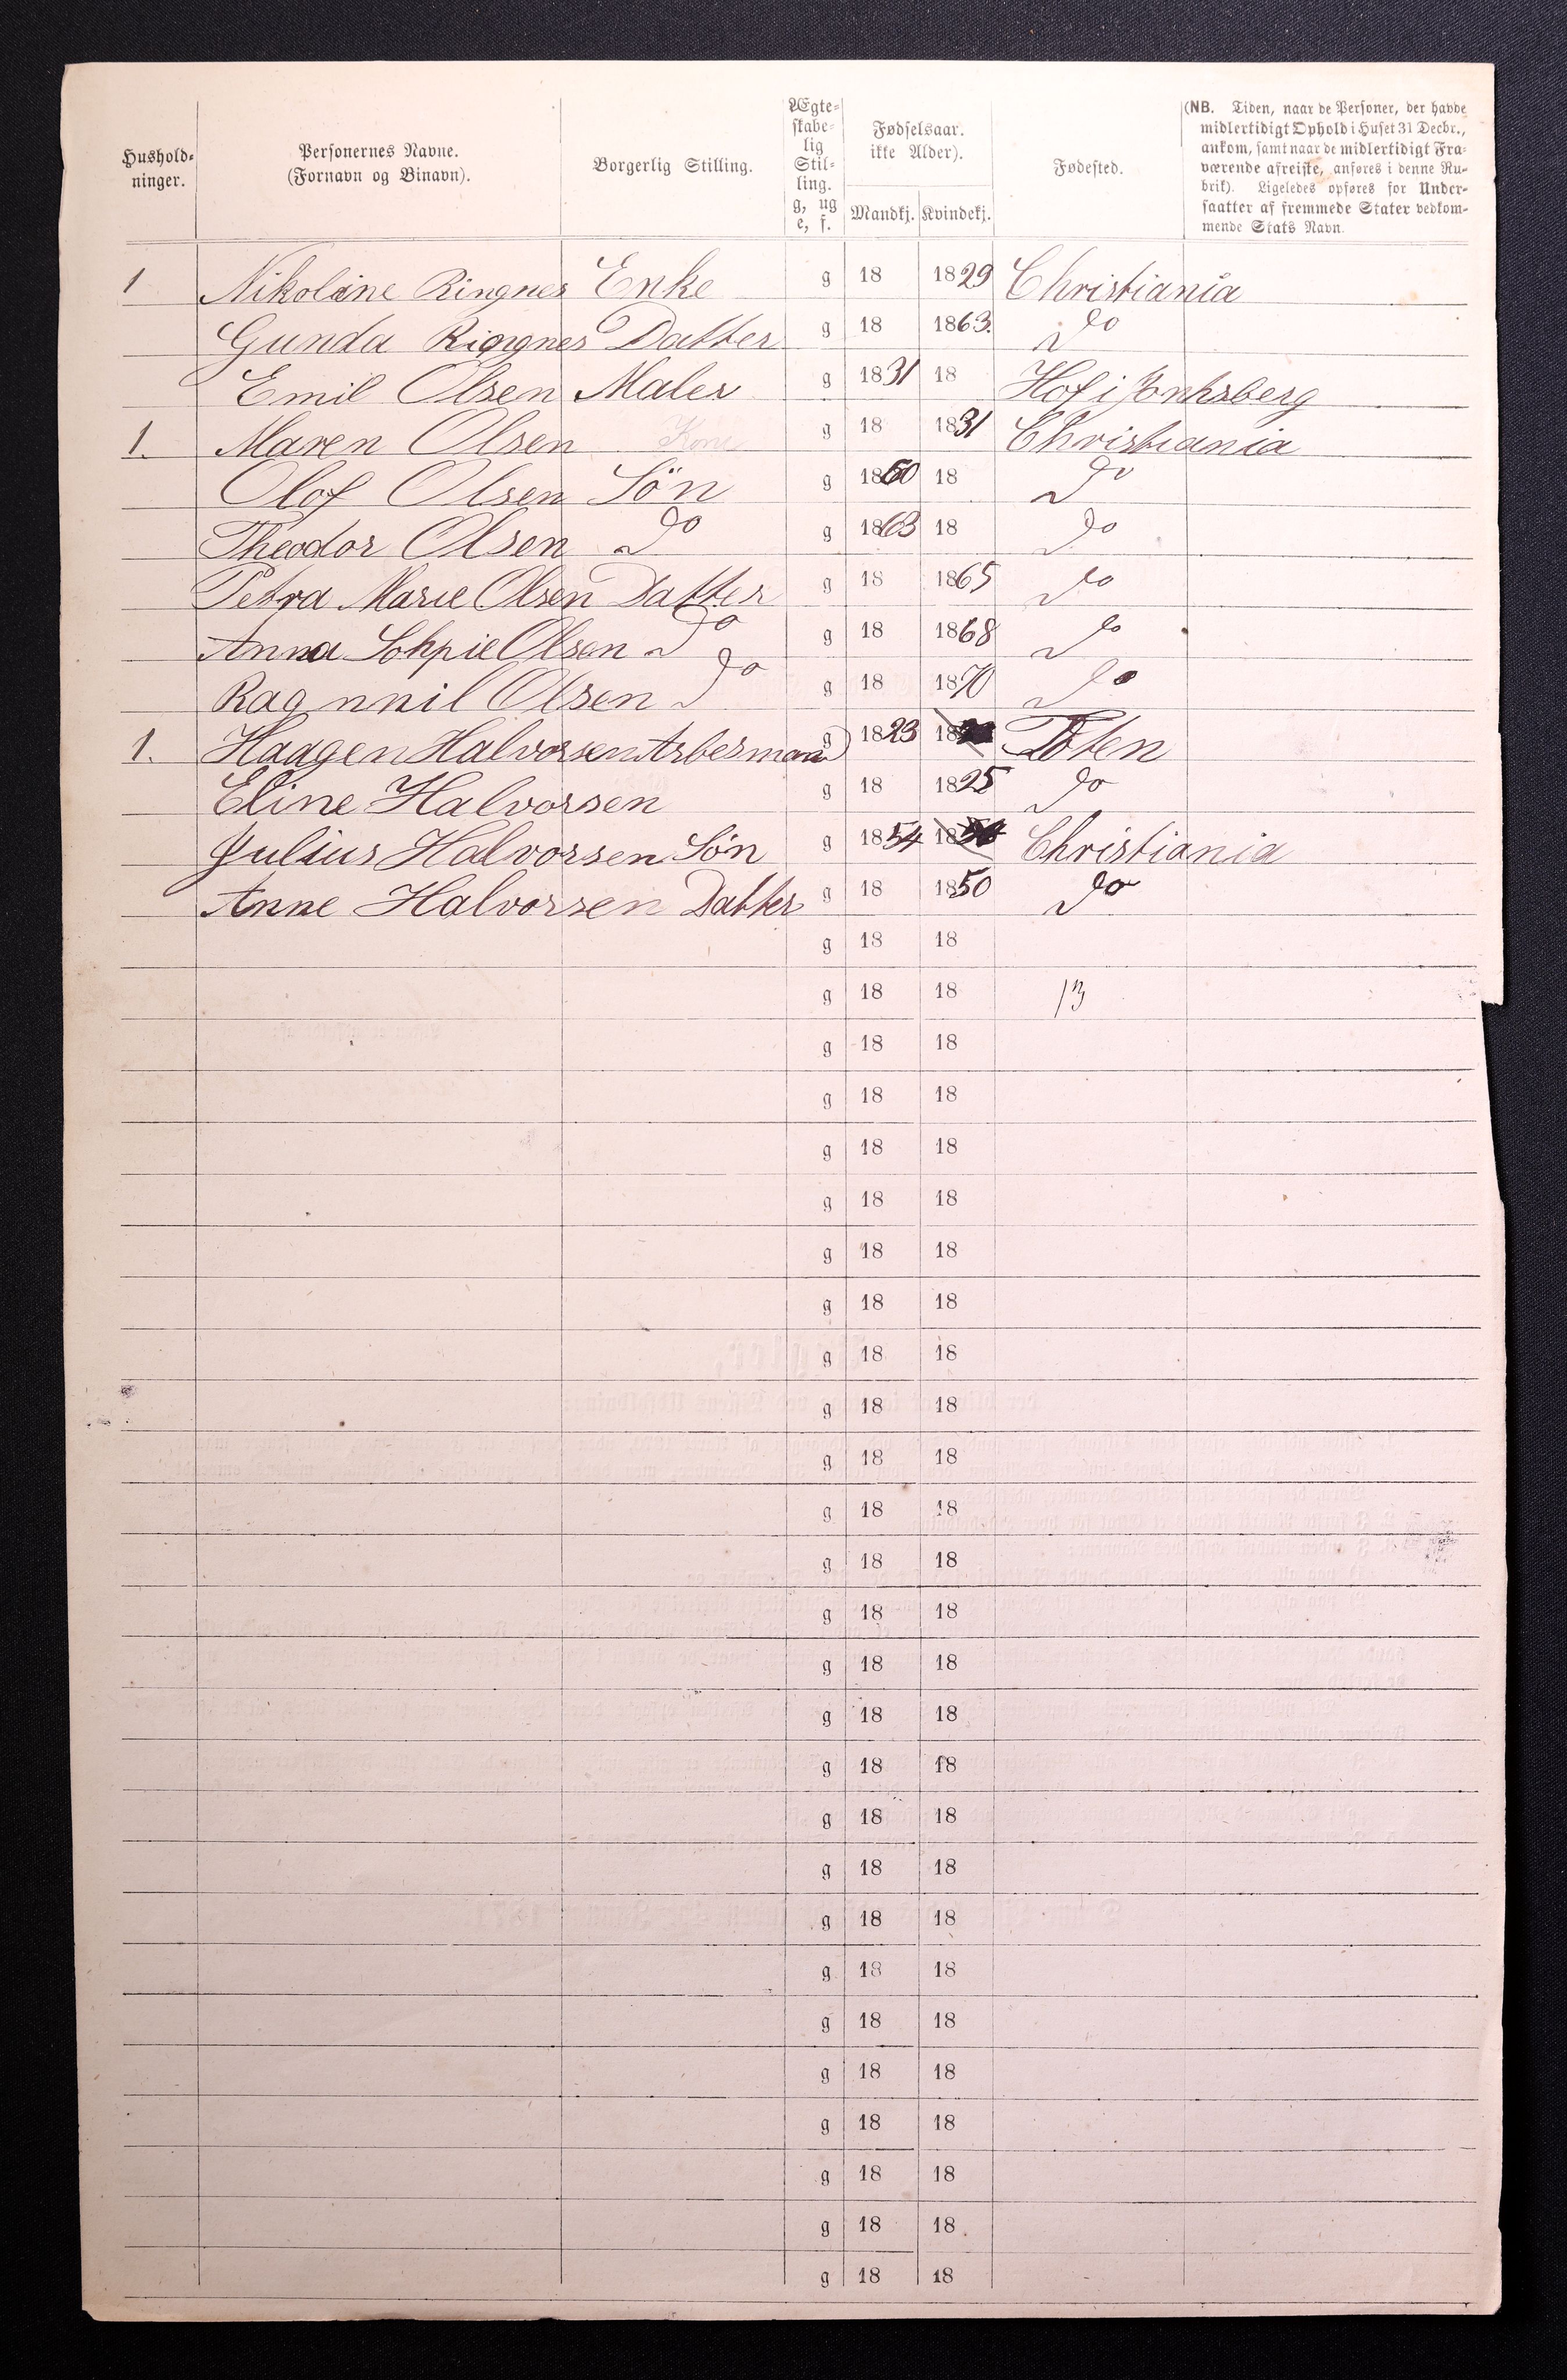 Hushold-
ninger.
Personernes Navne.
(Fornavn og Binavn).
Borgerlig Stilling.
Ægte-
skabe-
lig
Stil-
ling.
g, ug
e, f.
Fødselsaar.
ikke Alder).
Mandkj. Kvindekj.
Fødested.
(NB. Tiden, naar de Personer, der havde
midlertidigt Ophold i Huset 31 Decbr.,
ankom, samt naar de midlertidigt Fra-
værende afreiste, anføres i denne Ru-
brik). Ligeledes opføres for Under-
saatter af fremmede Stater vedkom-
mende Stats Navn.
1 Nikoline Ringnes Enke g 18 1829 Christiania
Gunda Ringnes Datter g 18 1863. Do
Emil Olsen Maler g 1831 18 Hof i
1. Maren Olsen Kone g 18 1831 Christiania
Olof Olsen Sön g 1860 18 Do
Theodor Olsen Do g 1863 18 Do
Petra Marie Olsen Datter g 18 1865 Do
Anna Sohpie Olsen Do g 18 1868 Do
Ragnnil Olsen Do g 18 1870 Do
1. Haagen Halvorsen Arbesman g 1823 18 Toten
Eline Halvorsen g 18 1825 Do
Julius Halvorsen Sön g 1854 18 Christiania
Anne Halvorsen Datter g 18 1850 Do
g 18 18
g 18 18 13
g 18 18
g 18 18
g 18 18
g 18 18
g 18 18
g 18 18
g 18 18
g 18 18
g 18 18
g 18 18
g 18 18
g 18 18
g 18 18
g 18 18
g 18 18
g 18 18
g 18 18
g 18 18
g 18 18
g 18 18
g 18 18
g 18 18
g 18 18
g 18 18
g 18 18